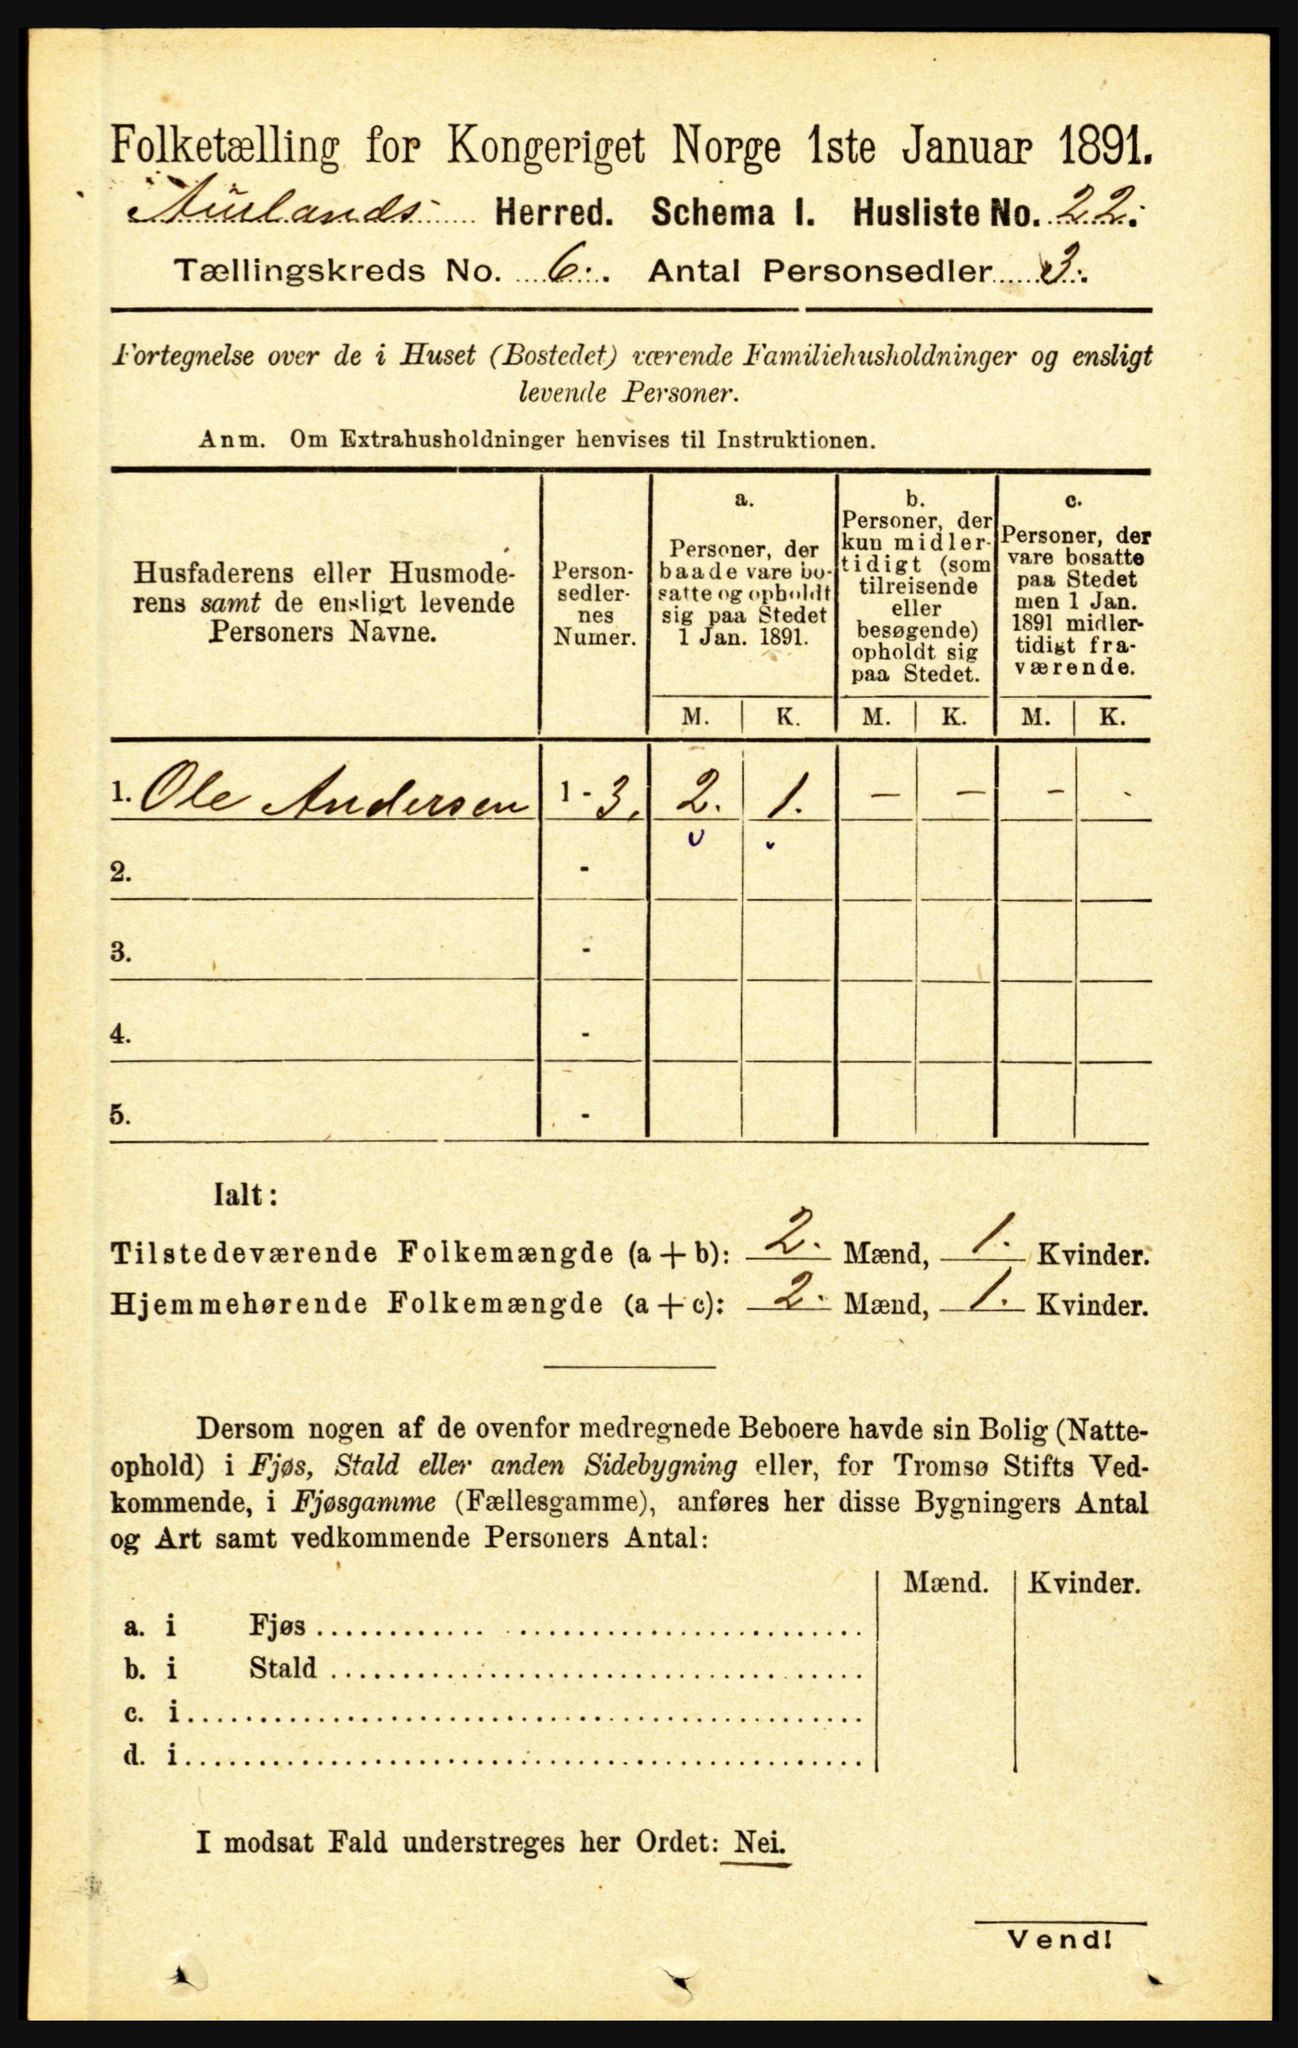 Folketælling for Kongeriget Norge 1ste Januar 1891.
Aurlands Herred. Schema I. Husliste No. 22.
Tællingskreds No. 6. Antal Personsedler 3.
Fortegnelse over de i Huset (Bostedet) værende Familiehusholdninger og ensligt
levende Personer.
Anm. Om Extrahusholdninger henvises til Instruktionen.
Husfaderens eller Husmode-
rens samt de ensligt levende
Personers Navne.
Person-
sedler-
nes
Numer.
a.
Personer, der
baade vare bo-
satte og opholdt
sig paa Stedet
1 Jan. 1891.
b.
Personer, der
kun midler-
tidigt (som
tilreisende
eller
besøgende)
opholdt sig
paa Stedet.
c.
Personer, der
vare bosatte
paa Stedet
men 1 Jan.
1891 midler-
tidigt fra-
værende.
M. K. M. K. M. K.
1. Ole Andersen 1 - 3. 2. 1. – – – -
2. -
3. -
4. -
5. -
Ialt:
Tilstedeværende Folkemængde (a + b): 2. Mænd, 1. Kvinder.
Hjemmehørende Folkemængde (a + c): 2. Mænd, 1. Kvinder.
Dersom nogen af de ovenfor medregnede Beboere havde sin Bolig (Natte-
ophold) i Fjøs, Stald eller anden Sidebygning eller, for Tromsø Stifts Ved-
kommende, i Fjøsgamme (Fællesgamme), anføres her disse Bygningers Antal
og Art samt vedkommende Personers Antal:
Mænd. Kvinder.
a. i Fjøs
b. i Stald
c. i
d. i
I modsat Fald understreges her Ordet: Nei.
Vend!